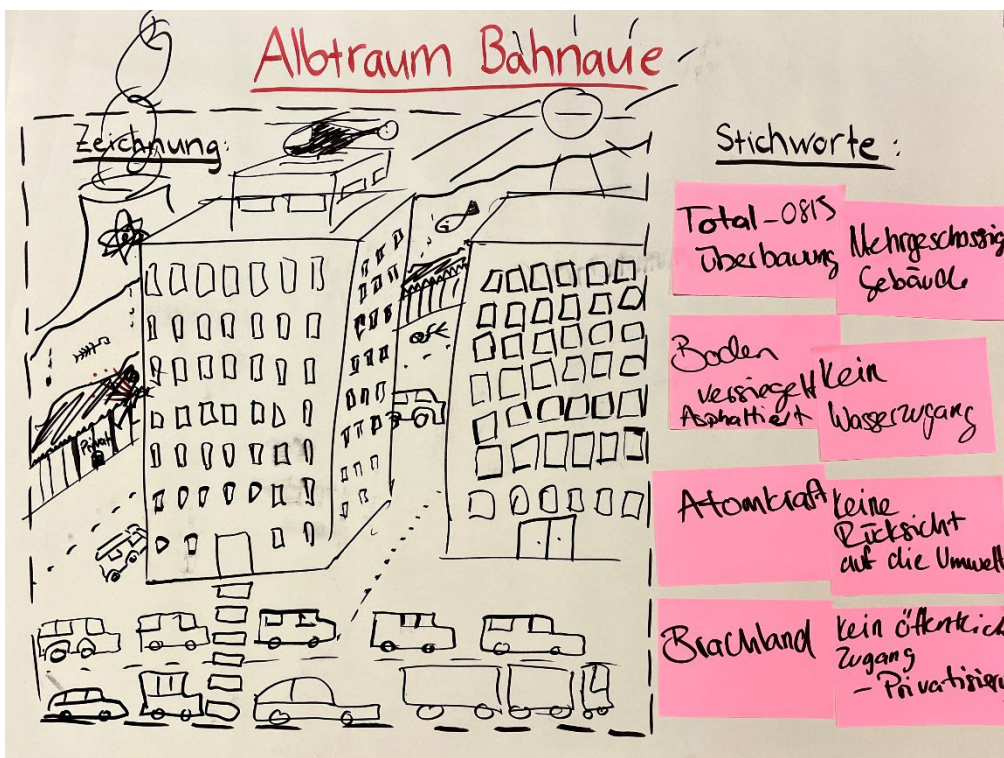 Albtraum Bahnaue
Zeichnung:
Stichworte:
Total-0815
Überbauung
Mehrgeschossig
Gebäude
Boden
versiegelt
Asphaltiert
Kein
Wasserzugang
Atomkraft
Keine
Rücksicht
auf die Umwelt
Brachland
Kein öffentlich
Zugang
- Privatisieru
Privat